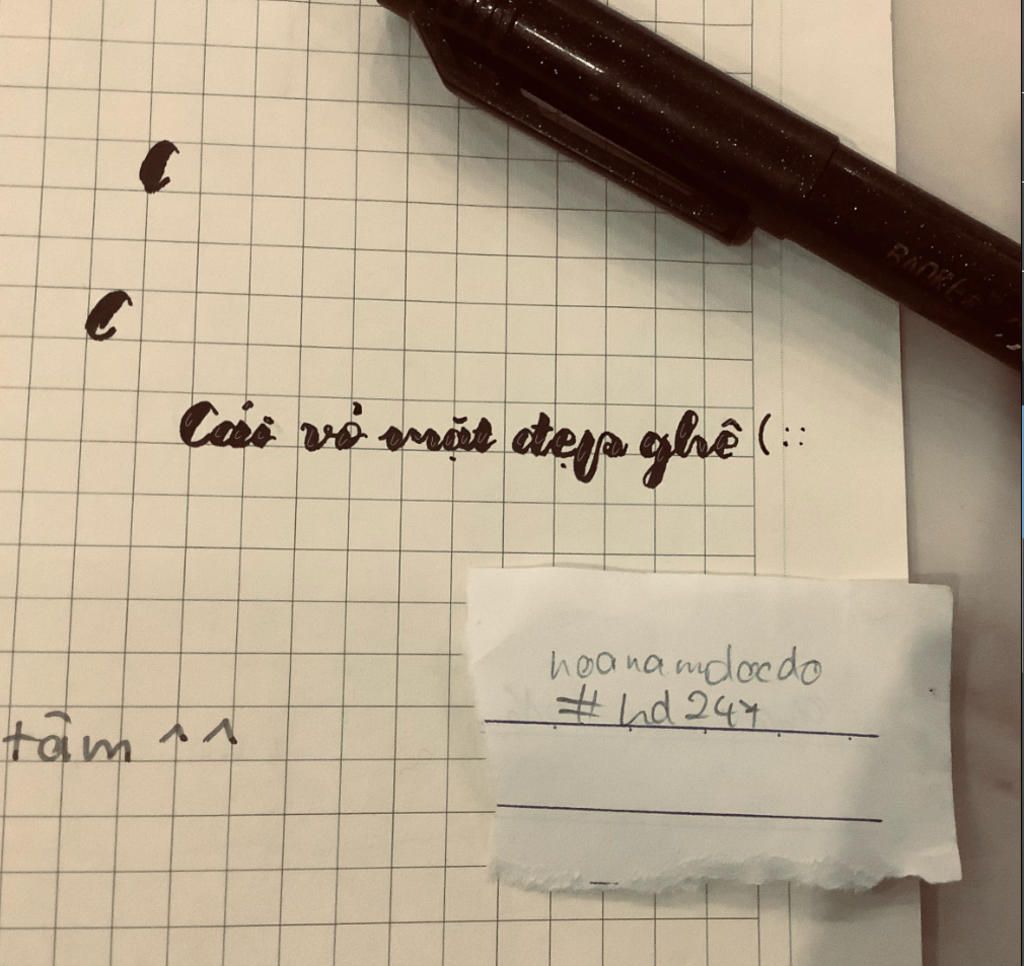 C
C
Cái vỏ mặt đẹp ghê (::
hoanamdocdo
#hd247
tâm ^^